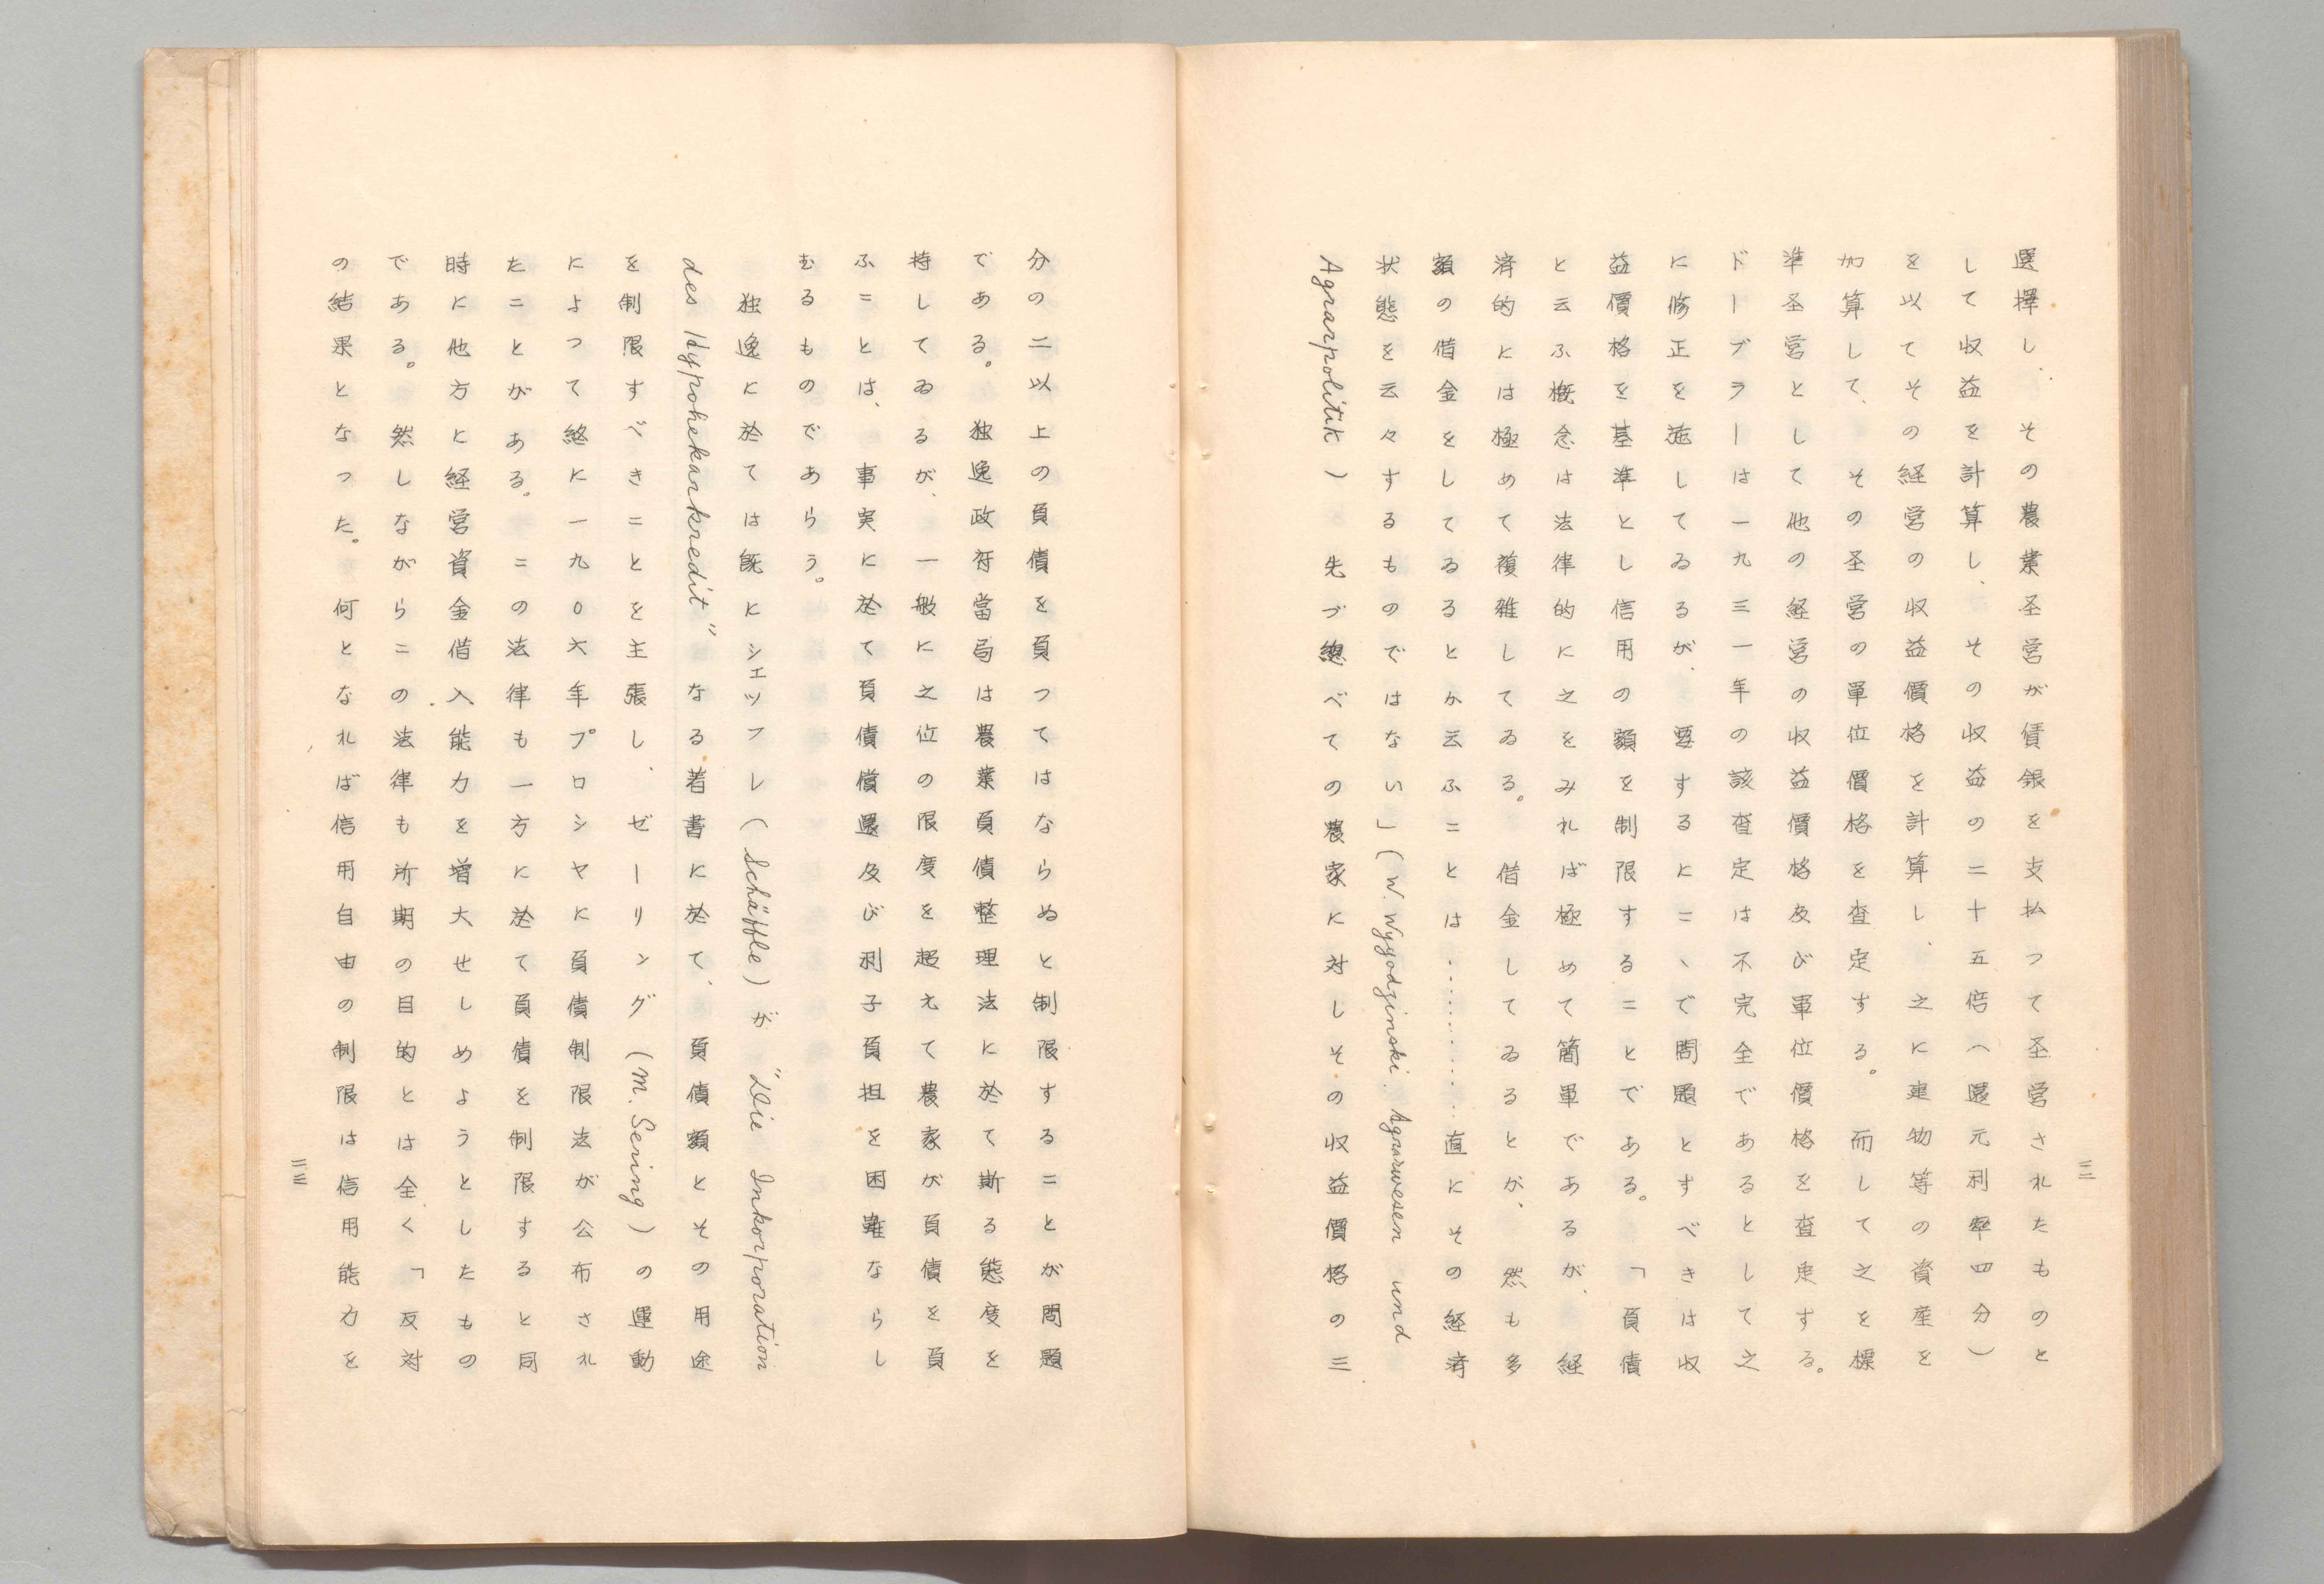 選擇し、その農業圣営が賃銀を支払つて圣営されたものと
して収益を計算し、その収益の二十五倍(還元利率四分)
を以てその経営の収益價格を計算し、之に建物等の資産を
加算して、その圣営の單位價格を査定する。而して之を標
準圣営として他の経営の収益價格及び單位價格を査定する。
ドーブラーは一九三一年の該査定は不完全であるとして之
に修正を施してゐるが、要するにこゝで問題とすべきは収
益價格を基準とし信用の額を制限することである。「負債
と云ふ概念は法律的に之をみれば極めて簡單であるが、経
済的には極めて複雑してゐる。借金してゐるとが、然も多
額の借金をしてるるとか云ふことは…………直にその経済
状態を云々するものではない」(W. Wygodzinski. Agrarwesen und
Agrarpolitik) 先づ總べての農家に対しその収益價格の三
三二
分の二以上の負債を負つてはならぬと制限することが問題
である。独逸政府當局は農業負債整理法に於て斯る態度を
持してゐるが、一般に之位の限度を超えて農家が負債を負
ふことは、事実に於て負債償還及び利子負担を困難ならし
むるものであらう。
独逸に於ては既にシェッフレ(Schäffle)が "Die Inkorporation
des Hypohekarkredit" なる著書に於て、負債額とその用途
を制限すべきことを主張し、ゼーリング(M. Sering)の運動
によつて終に一九〇六年プロシヤに負債制限法が公布され
たことがある。この法律も一方に於て負債を制限すると同
時に他方に経営資金借入能力を増大せしめようとしたもの
である。然しながらこの法律も所期の目的とは全く「反対
の結果となつた。何となれば信用自由の制限は信用能力を
三三